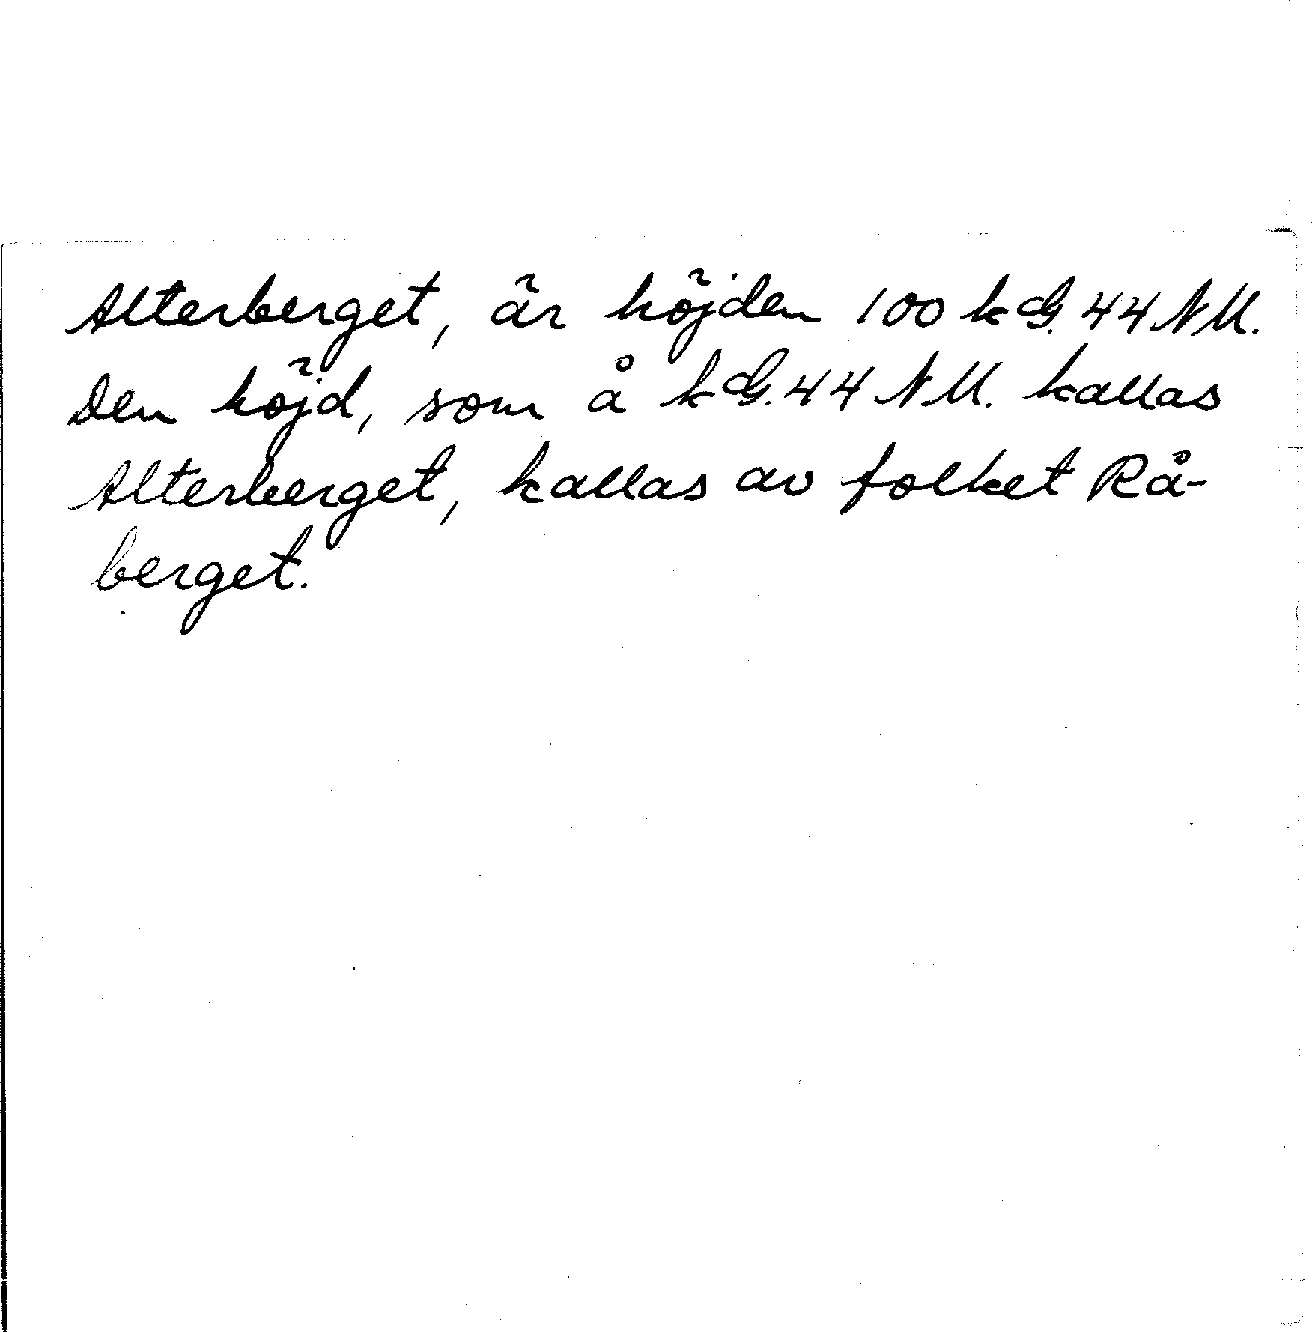 Alterberget, är höjden 100 k G. 44 NU.
Den höjd, som å k G. 44 NU. kallas
Alterberget, kallas av folket Rå-
berget.